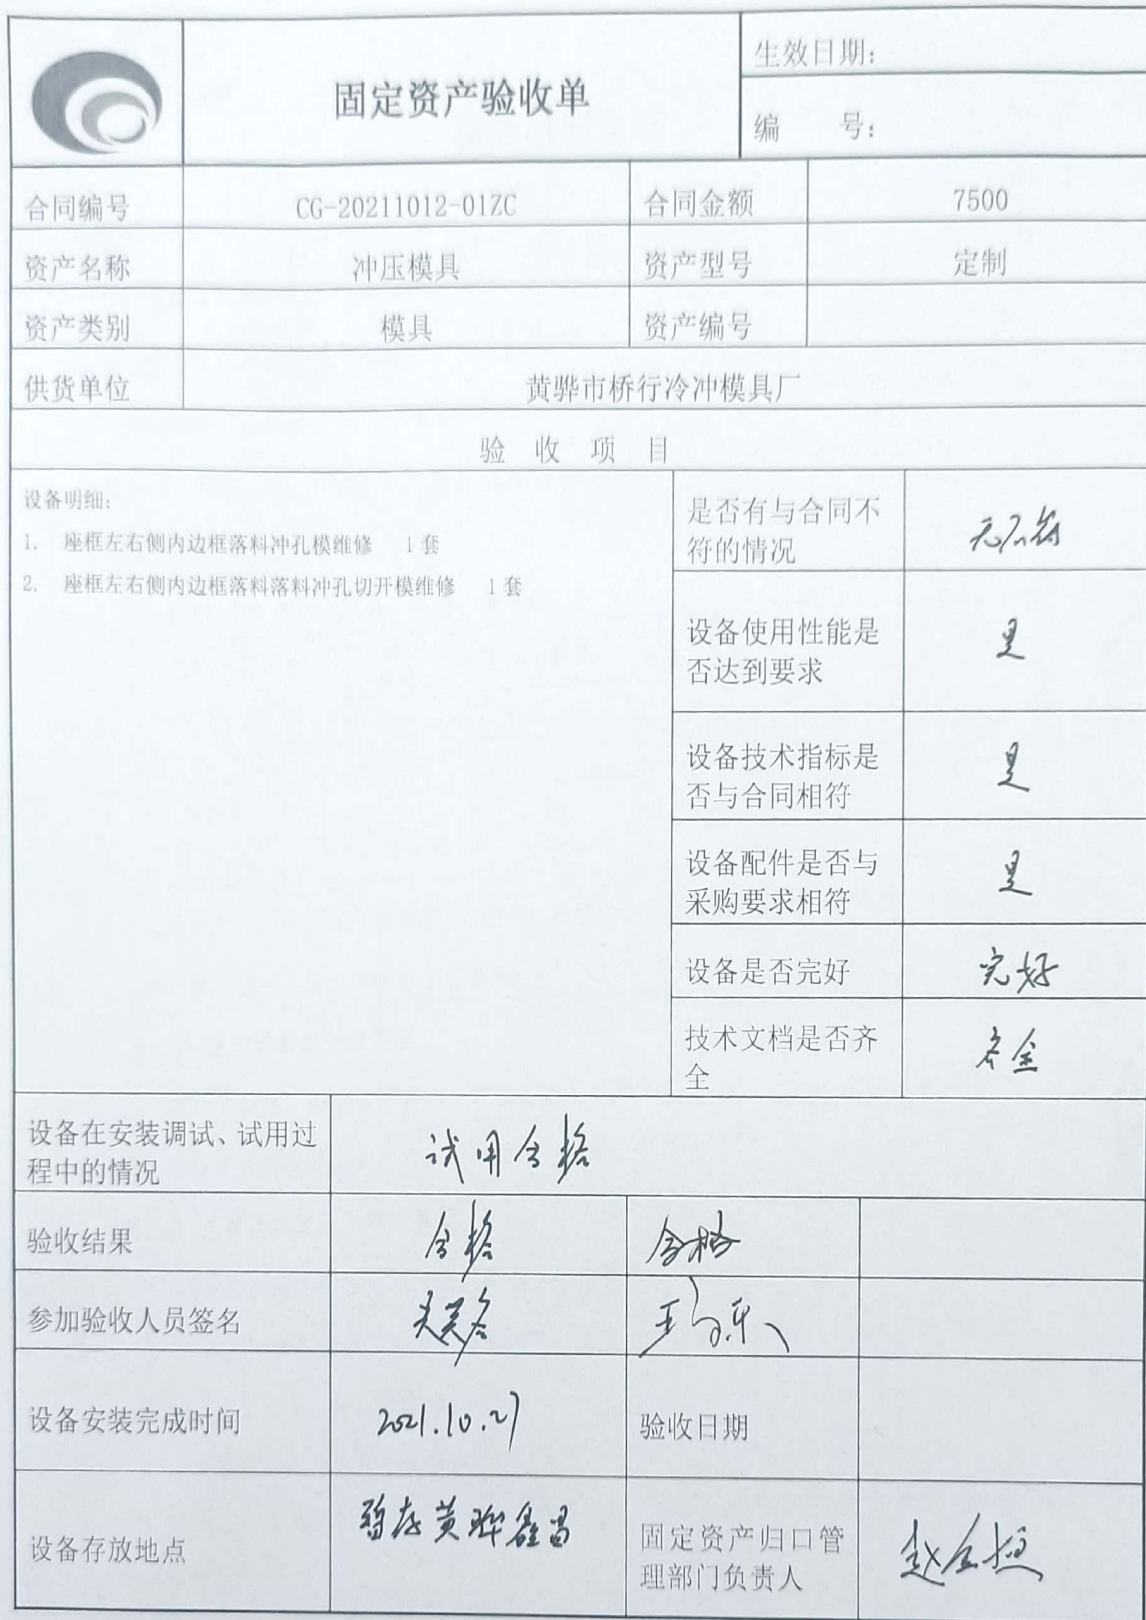 固定资产验收单
生效日期：
编 号：
合同编号 CG-20211012-01ZC 合同金额 7500
资产名称 冲压模具 资产型号 定制
资产类别 模具 资产编号
供货单位 黄骅市桥行冷冲模具厂
验 收 项 目
设备明细：
1. 座框左右侧内边框落料冲孔模维修 1套
2. 座框左右侧内边框落料落料冲孔切开模维修 1套
是否有与合同不
符的情况
无不符
设备使用性能是
否达到要求
是
设备技术指标是
否与合同相符
是
设备配件是否与
采购要求相符
是
设备是否完好 完好
技术文档是否齐
全
齐全
设备在安装调试、试用过
程中的情况
试用合格
验收结果 合格 合格
参加验收人员签名
设备安装完成时间 2021.10.27 验收日期
设备存放地点 暂存黄骅鑫昌
固定资产归口管
理部门负责人